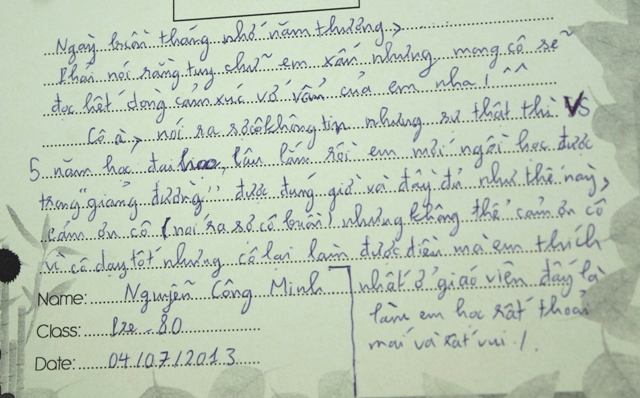 Ngày buồn tháng nhớ năm thương,
Phải nói rằng tuy chữ em xấu nhưng mong cô sẽ
đọc hết dòng cảm xúc vớ vẩn của em nha! ^^
Cô à, nói ra sợ cô không tin nhưng sự thật thì VS
5 năm học đại học, lâu lắm rồi em mới ngồi học được
trong "giảng đường" được đúng giờ và đầy đủ như thế này,
cám ơn cô (nói ra sợ cô buồn) nhưng không thể cảm ơn cô
vì cô dạy tốt nhưng cô lại làm được điều mà em thích
nhất ở giáo viên đấy là
làm em học rất thoải
mái và rất vui!.
Name: Nguyễn Công Minh
Class: Pre-80
Date: 04/07/2013